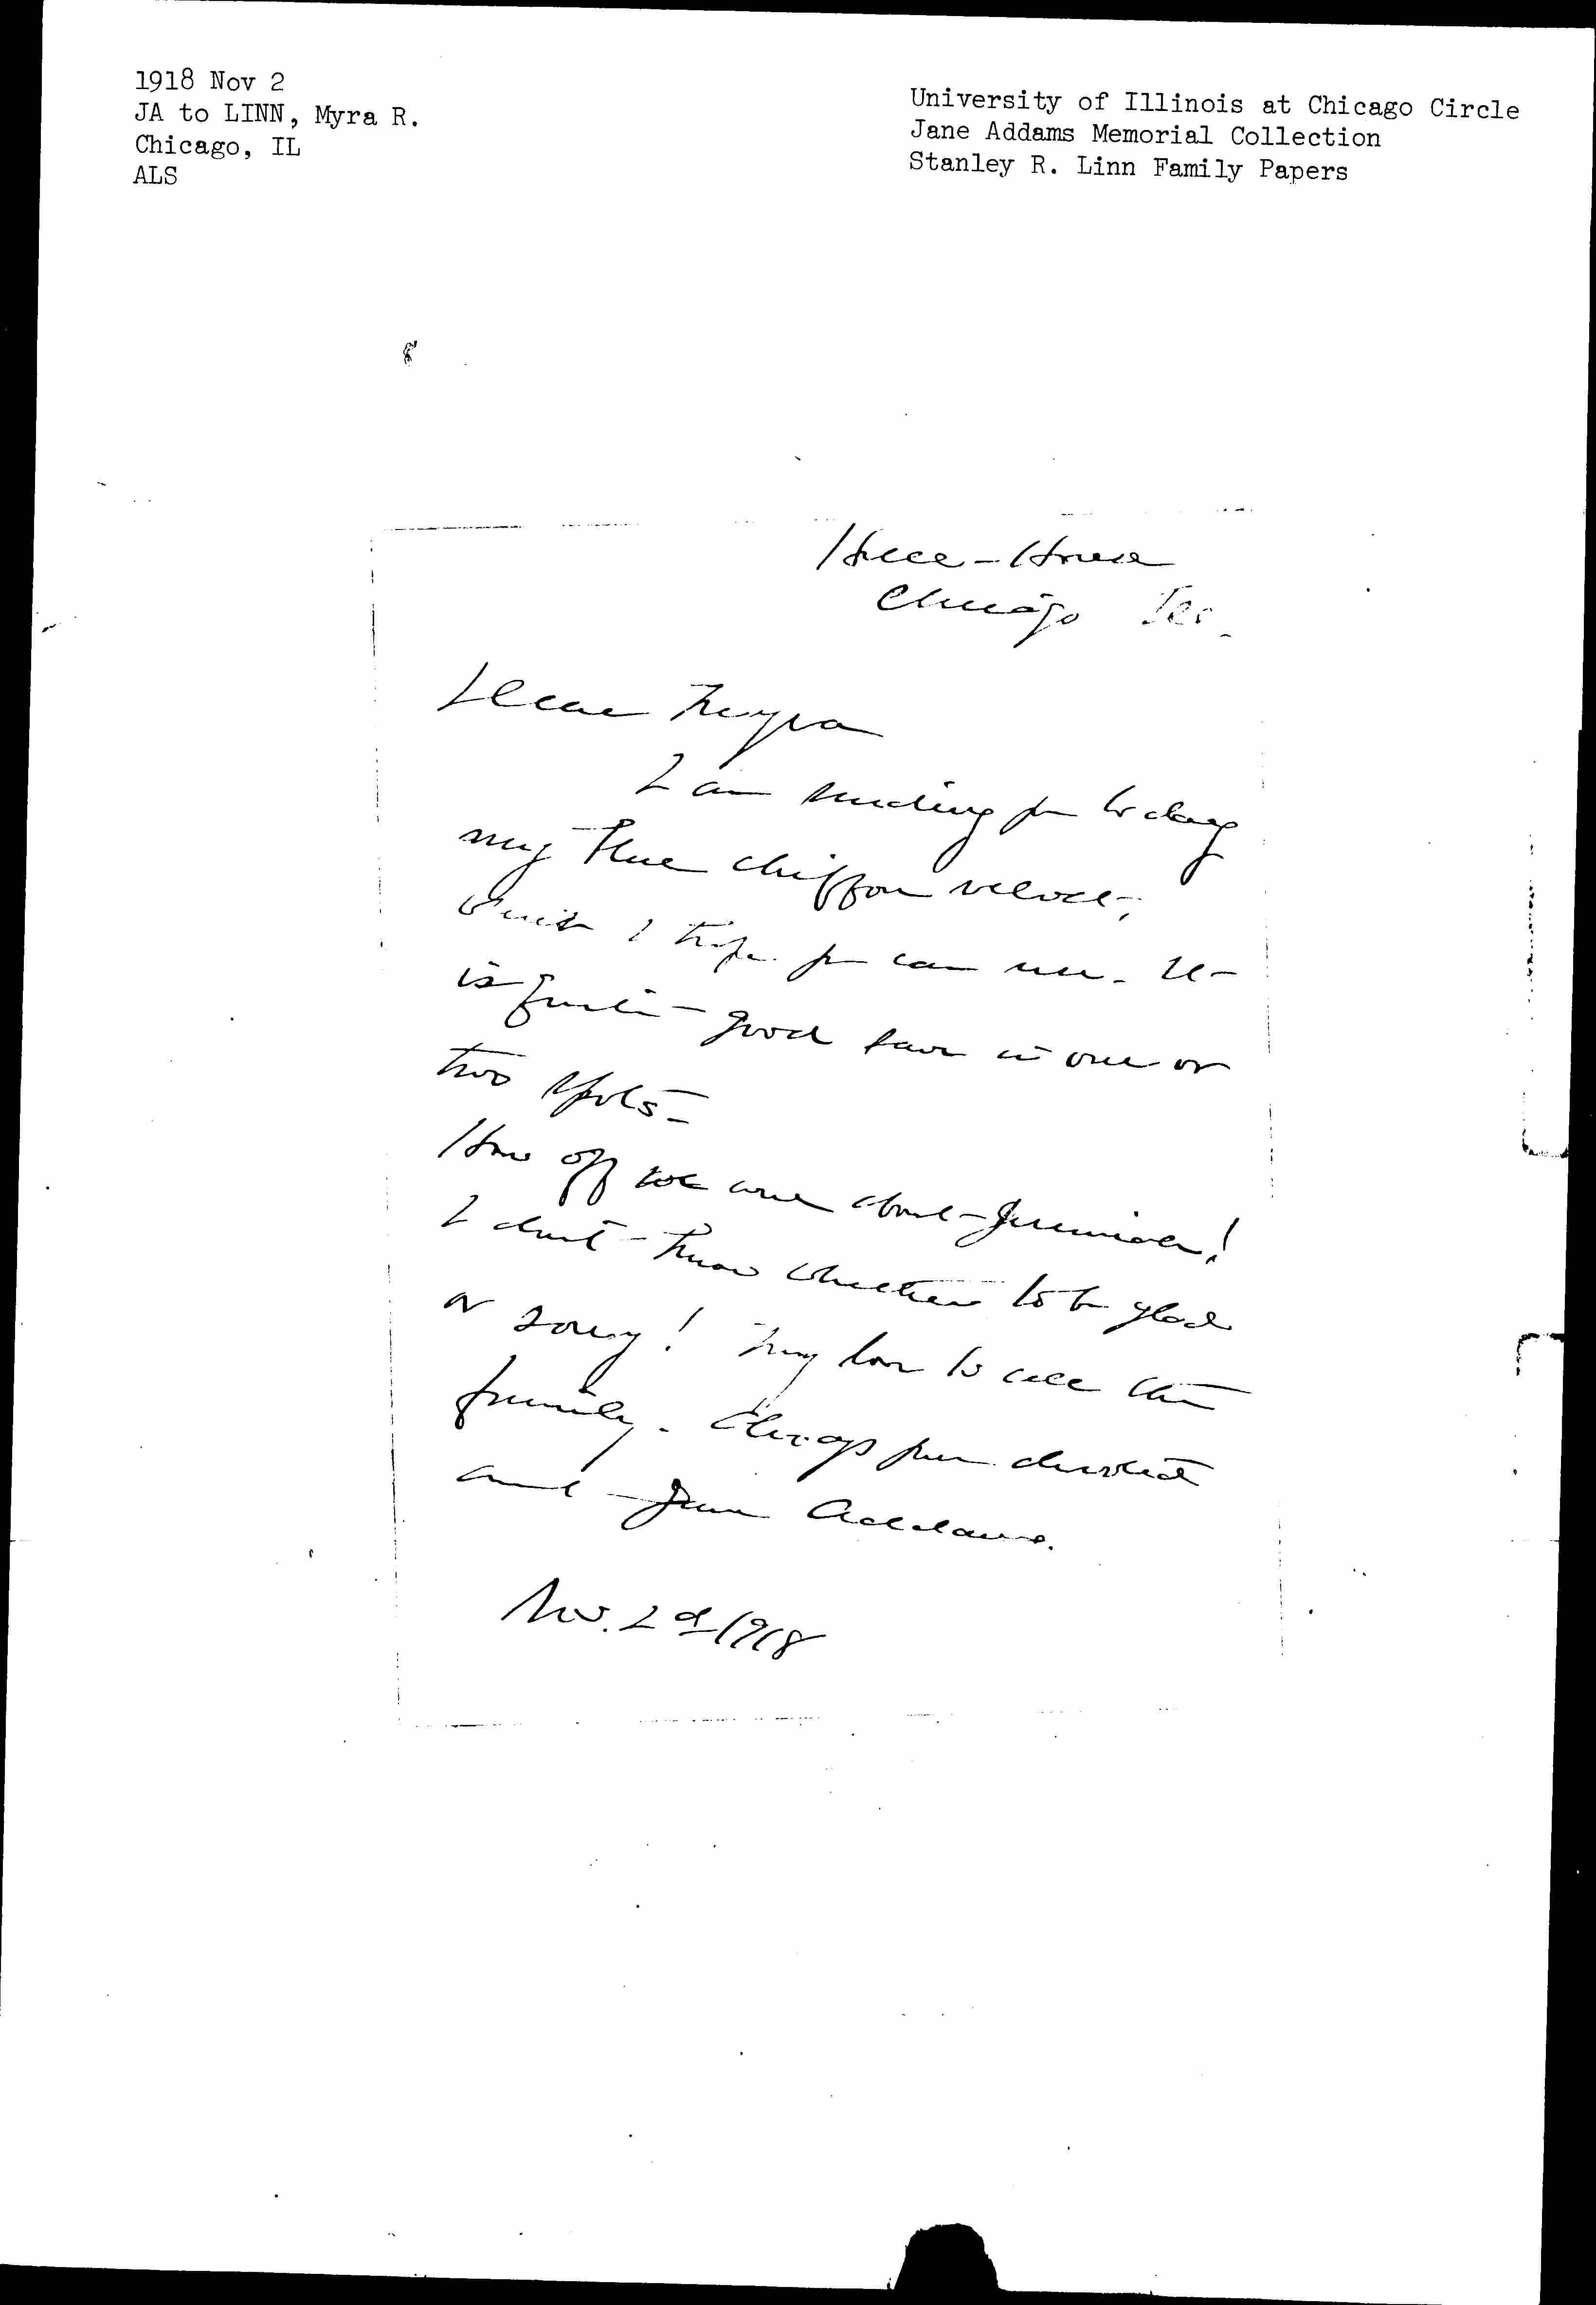 1918 Nov 2
JA to LINN, Myra R.
Chicago, IL
ALS
University of Illinois at Chicago Circle
Jane Addams Memorial Collection
Stanley R. Linn Family Papers
Hull-House
Chicago Ill.
Dear Myra
I am sending you to day
my blue chiffon velvet,
which I hope you can use. It
is quite good save in one or
two spots-
How off we were about
I don't know whether to be glad
or sorry! My love to all the
family. Always your devoted
aunt Jane Addams.
Nov. 2d 1918